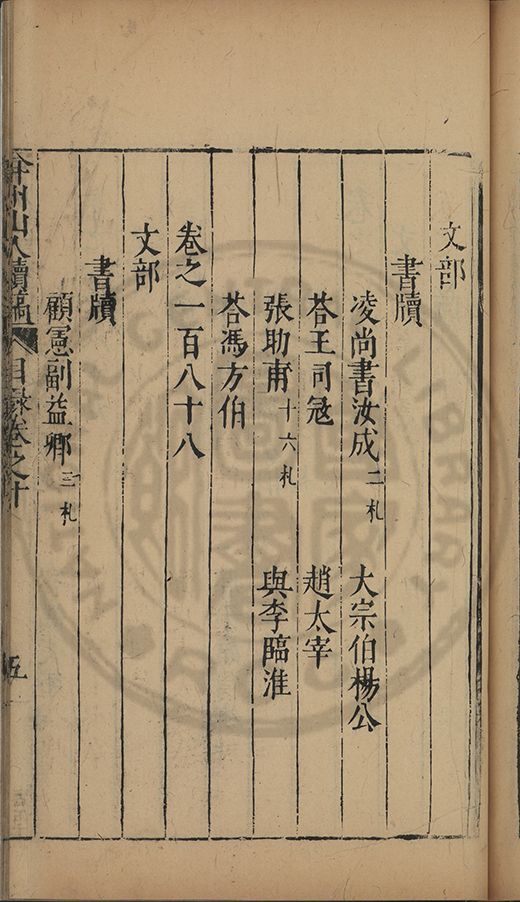 文部
書牘
凌尚書汝成二札　大宗伯楊公
荅王司宼　趙太宰
張助甫十六札　與李臨淮
荅馮方伯
卷之一百八十八
文部
書牘
顧憲副益卿三札
弇州山人續稿　目錄卷之十　五